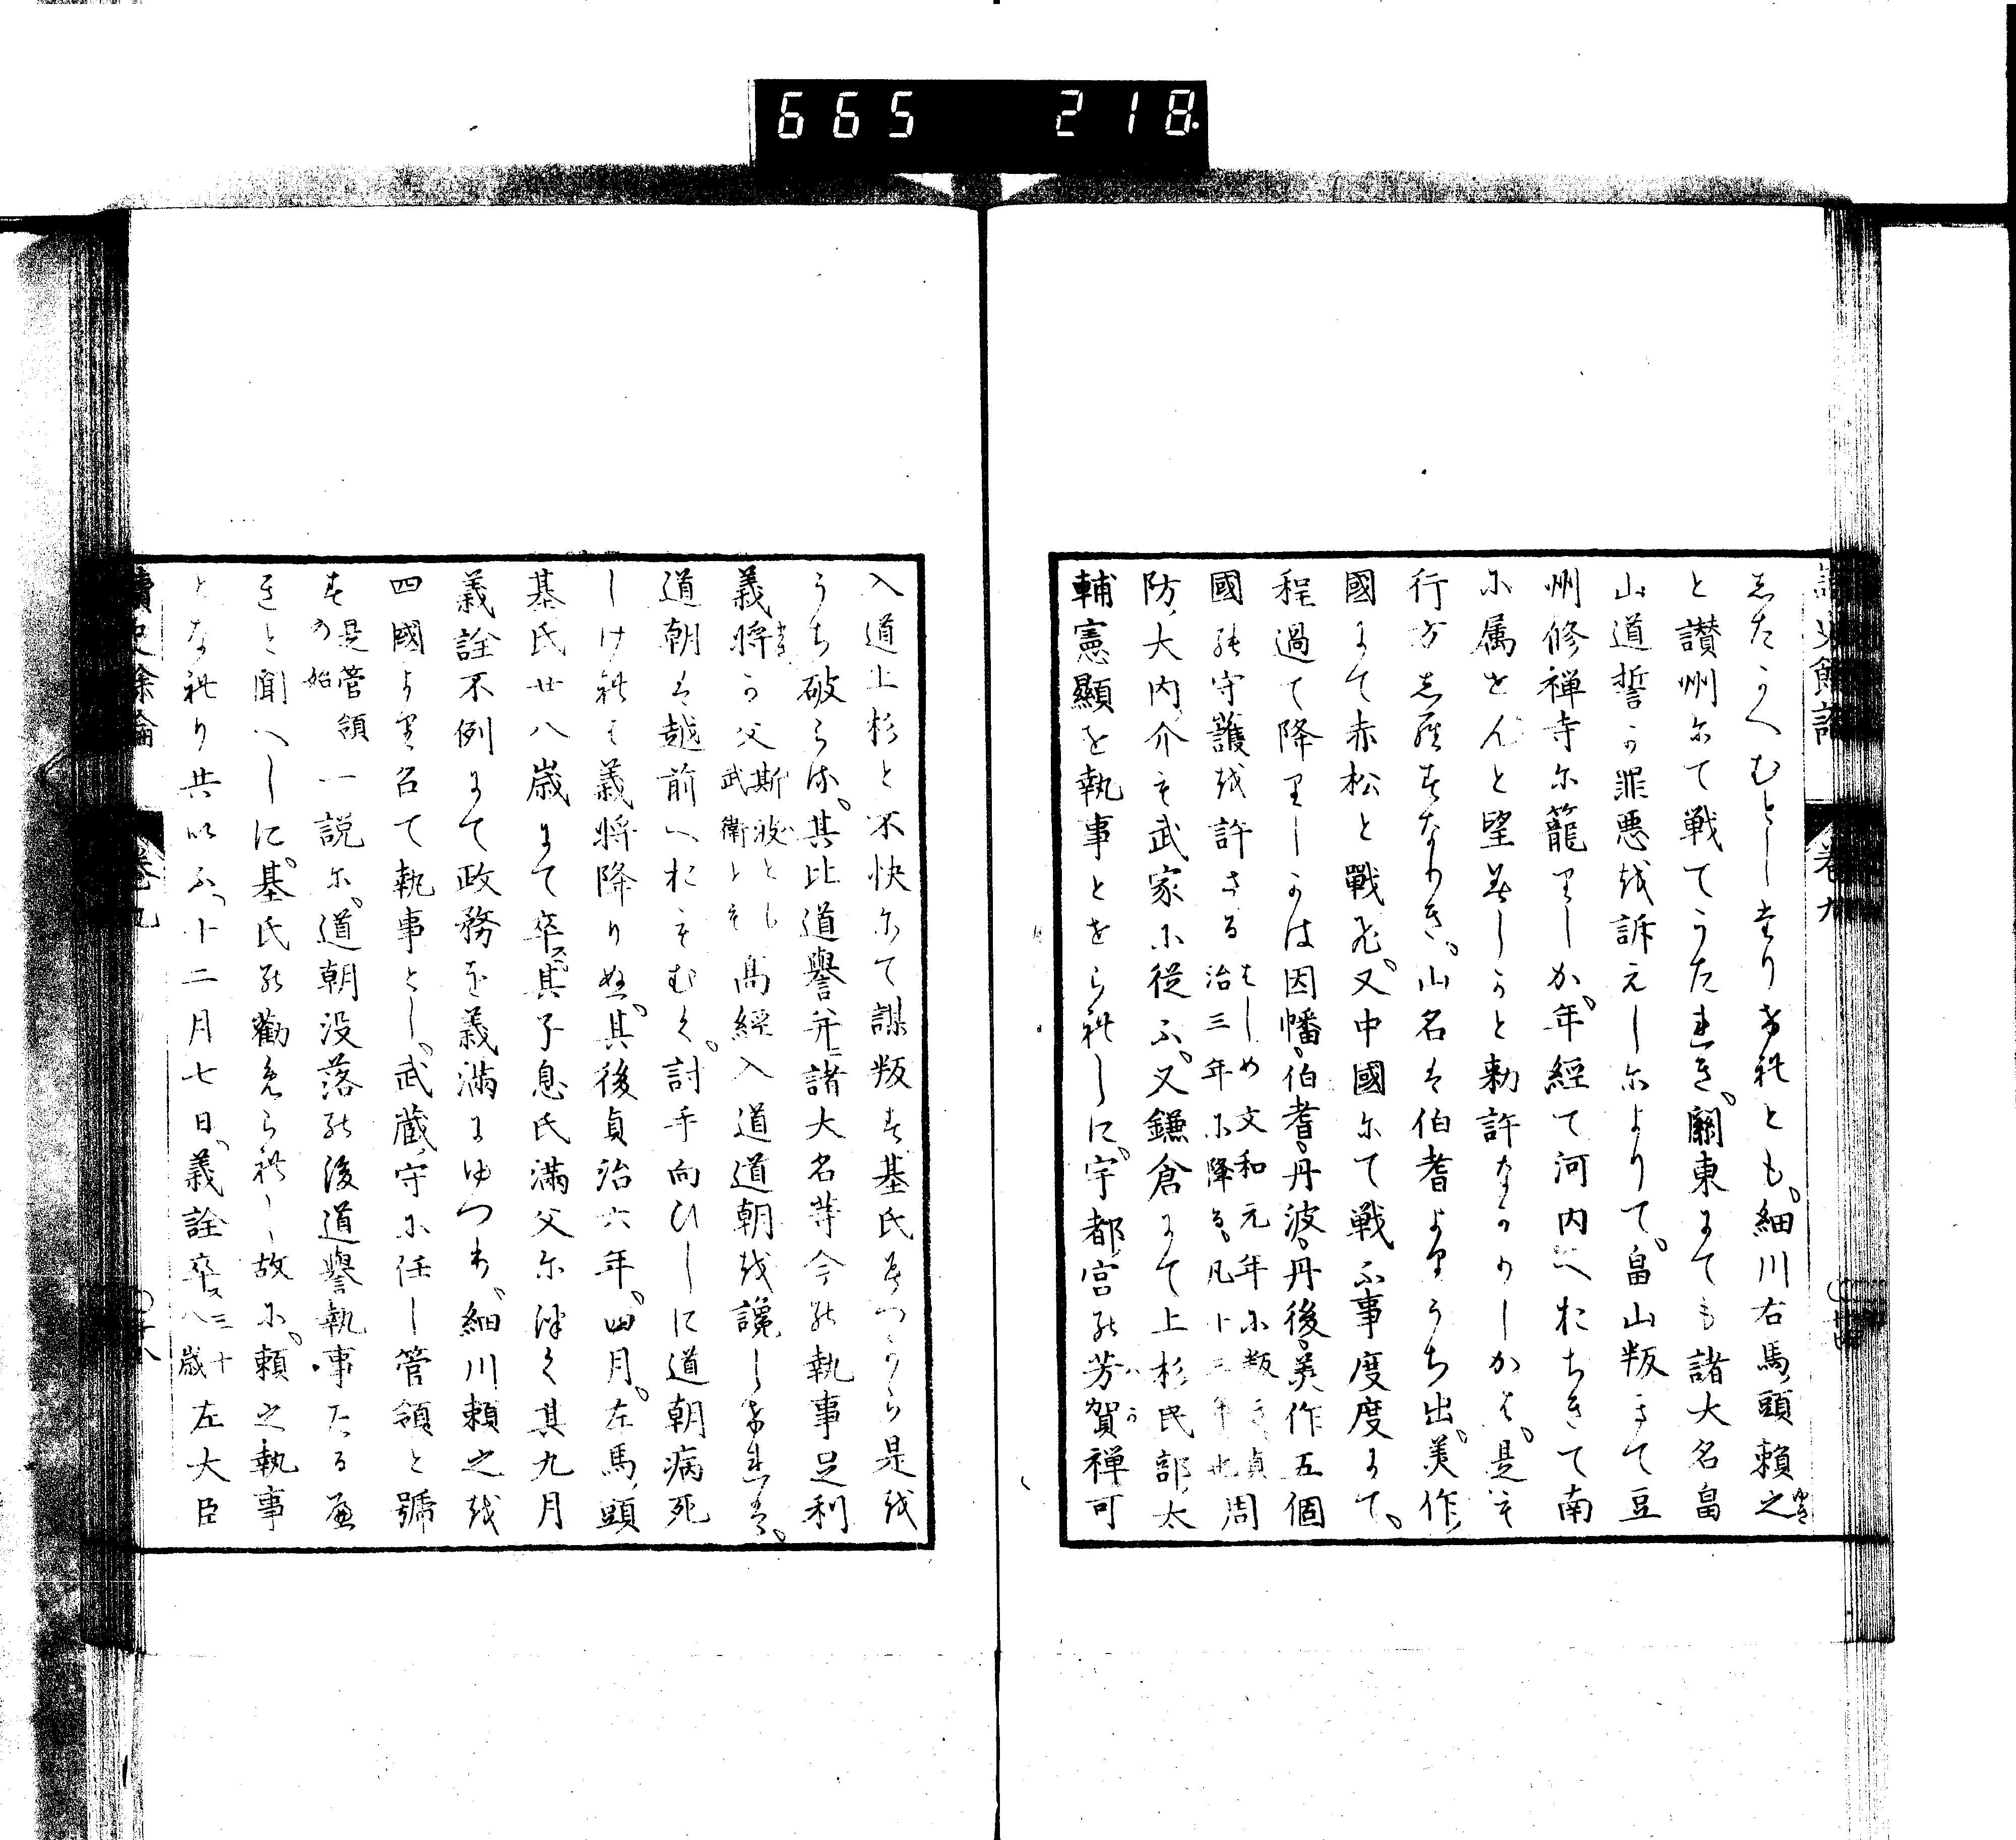 665 218
したかへむとしたりけれとも。細川右馬頭頼之
と讃州にて戦てうたれき。關東にても諸大名畠
山道誓か罪悪を訴えしによりて。畠山叛きて豆
州修禅寺に籠りしか。年經て河内へおちきて南
に属せんと望ましかと勅許なかりしかは。是も
行方しらすなりき。山名は伯耆よりうち出。美作
國にて赤松と戰ふ。又中國にて戦ふ事度度にて。
程過て降りしかは因幡。伯耆。丹波。丹後。美作五個
國の守護を許さるはしめ文和元年に叛き貞治三年に降る。凡十三年也周
防大内介も武家に従ふ。又鎌倉にて上杉民部太
輔憲顯を執事とせられしに。宇都宮の芳賀禅可
讀史餘論 巻九
入道上杉と不快にて謀叛す。基氏みつから是を
うち破らる。其比道譽并諸大名等今の執事足利
義将か父斯波とも武衛とも高經入道道朝を讒しけれは。
道朝は越前へおもむく。討手向ひしに道朝病死
しけれは義将降りぬ。其後貞治六年。四月。左馬頭
基氏廿八歳にて卒。其子息氏満父に継く其九月
義詮不例にて政務を義満にゆつり。細川頼之を
四國より召て執事とし。武蔵守に任し管領と號
す是管領の始一説に。道朝没落の後道譽執事たるへ
きと聞へしに。基氏の勸められし故に。頼之執事
となれり共いふ。十二月七日。義詮卒三十八歳左大臣
讀史餘論 巻九